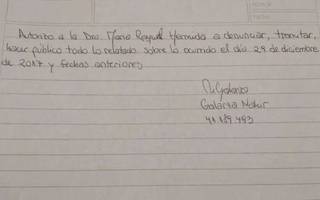 Autorizo a la Dra. Maria Raquel Hermida a denunciar, tramitar,
hacer público todo lo relatado sobre lo ocurrido el día 29 de diciembre
de 2017 y fechas anteriores
Galarza